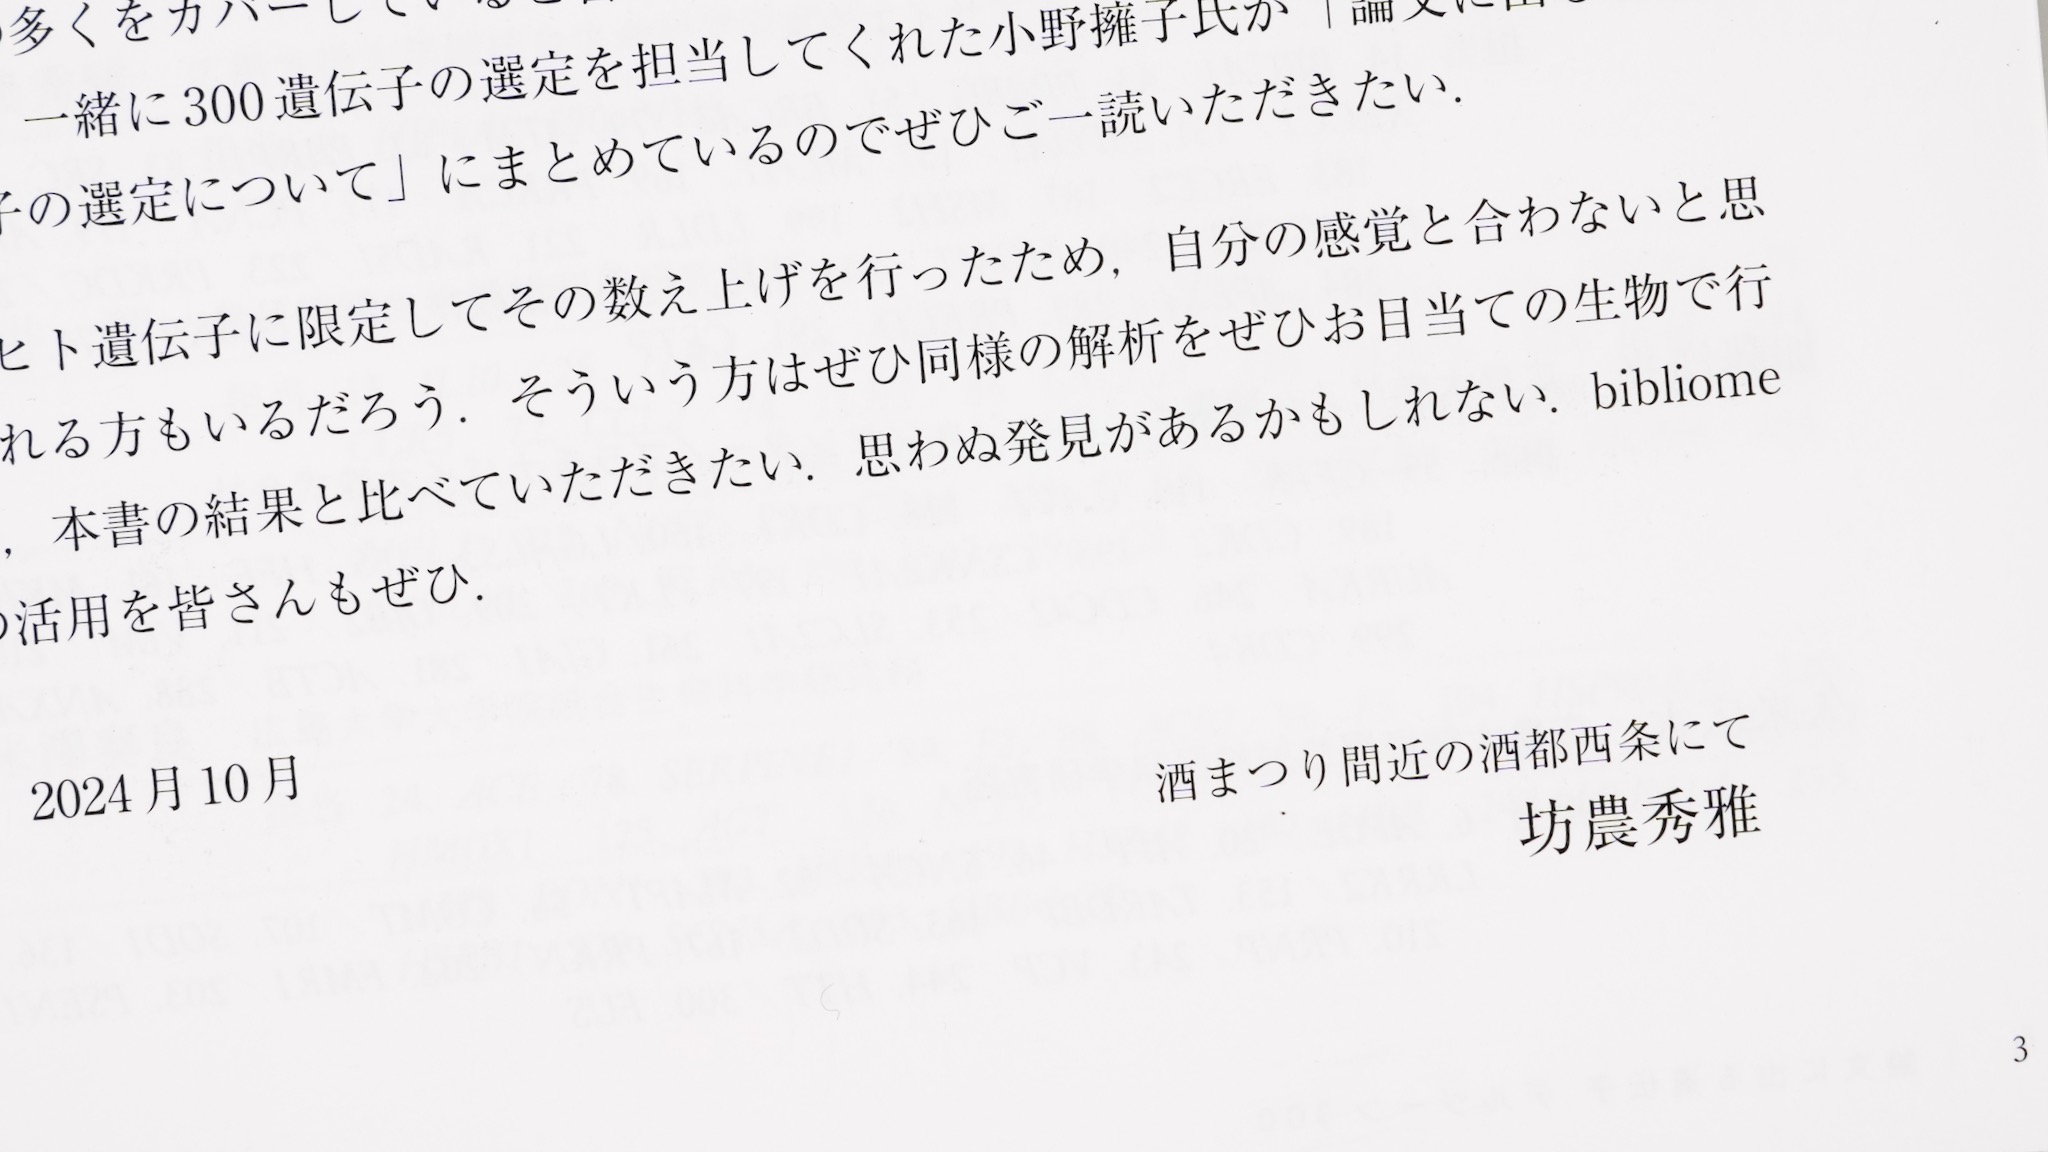 多くをカバーしていると
一緒に300遺伝子の選定を担当してくれた小野擁子氏が「論文に出
子の選定について」にまとめているのでぜひご一読いただきたい.
ヒト遺伝子に限定してその数え上げを行ったため,自分の感覚と合わないと思
れる方もいるだろう.そういう方はぜひ同様の解析をぜひお目当ての生物で行
,本書の結果と比べていただきたい.思わぬ発見があるかもしれない.bibliome
の活用を皆さんもぜひ.
2024月10月
酒まつり間近の酒都西条にて
坊農秀雅
3